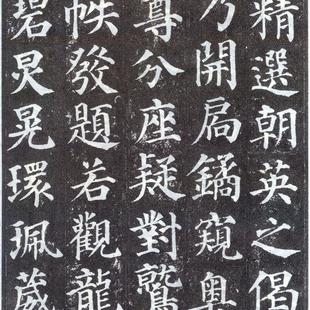 精選朝英之偈
乃開扃鐍窺奥
尊分座疑對鷲
帙發題若觀龍
碧炅晃環珮葳